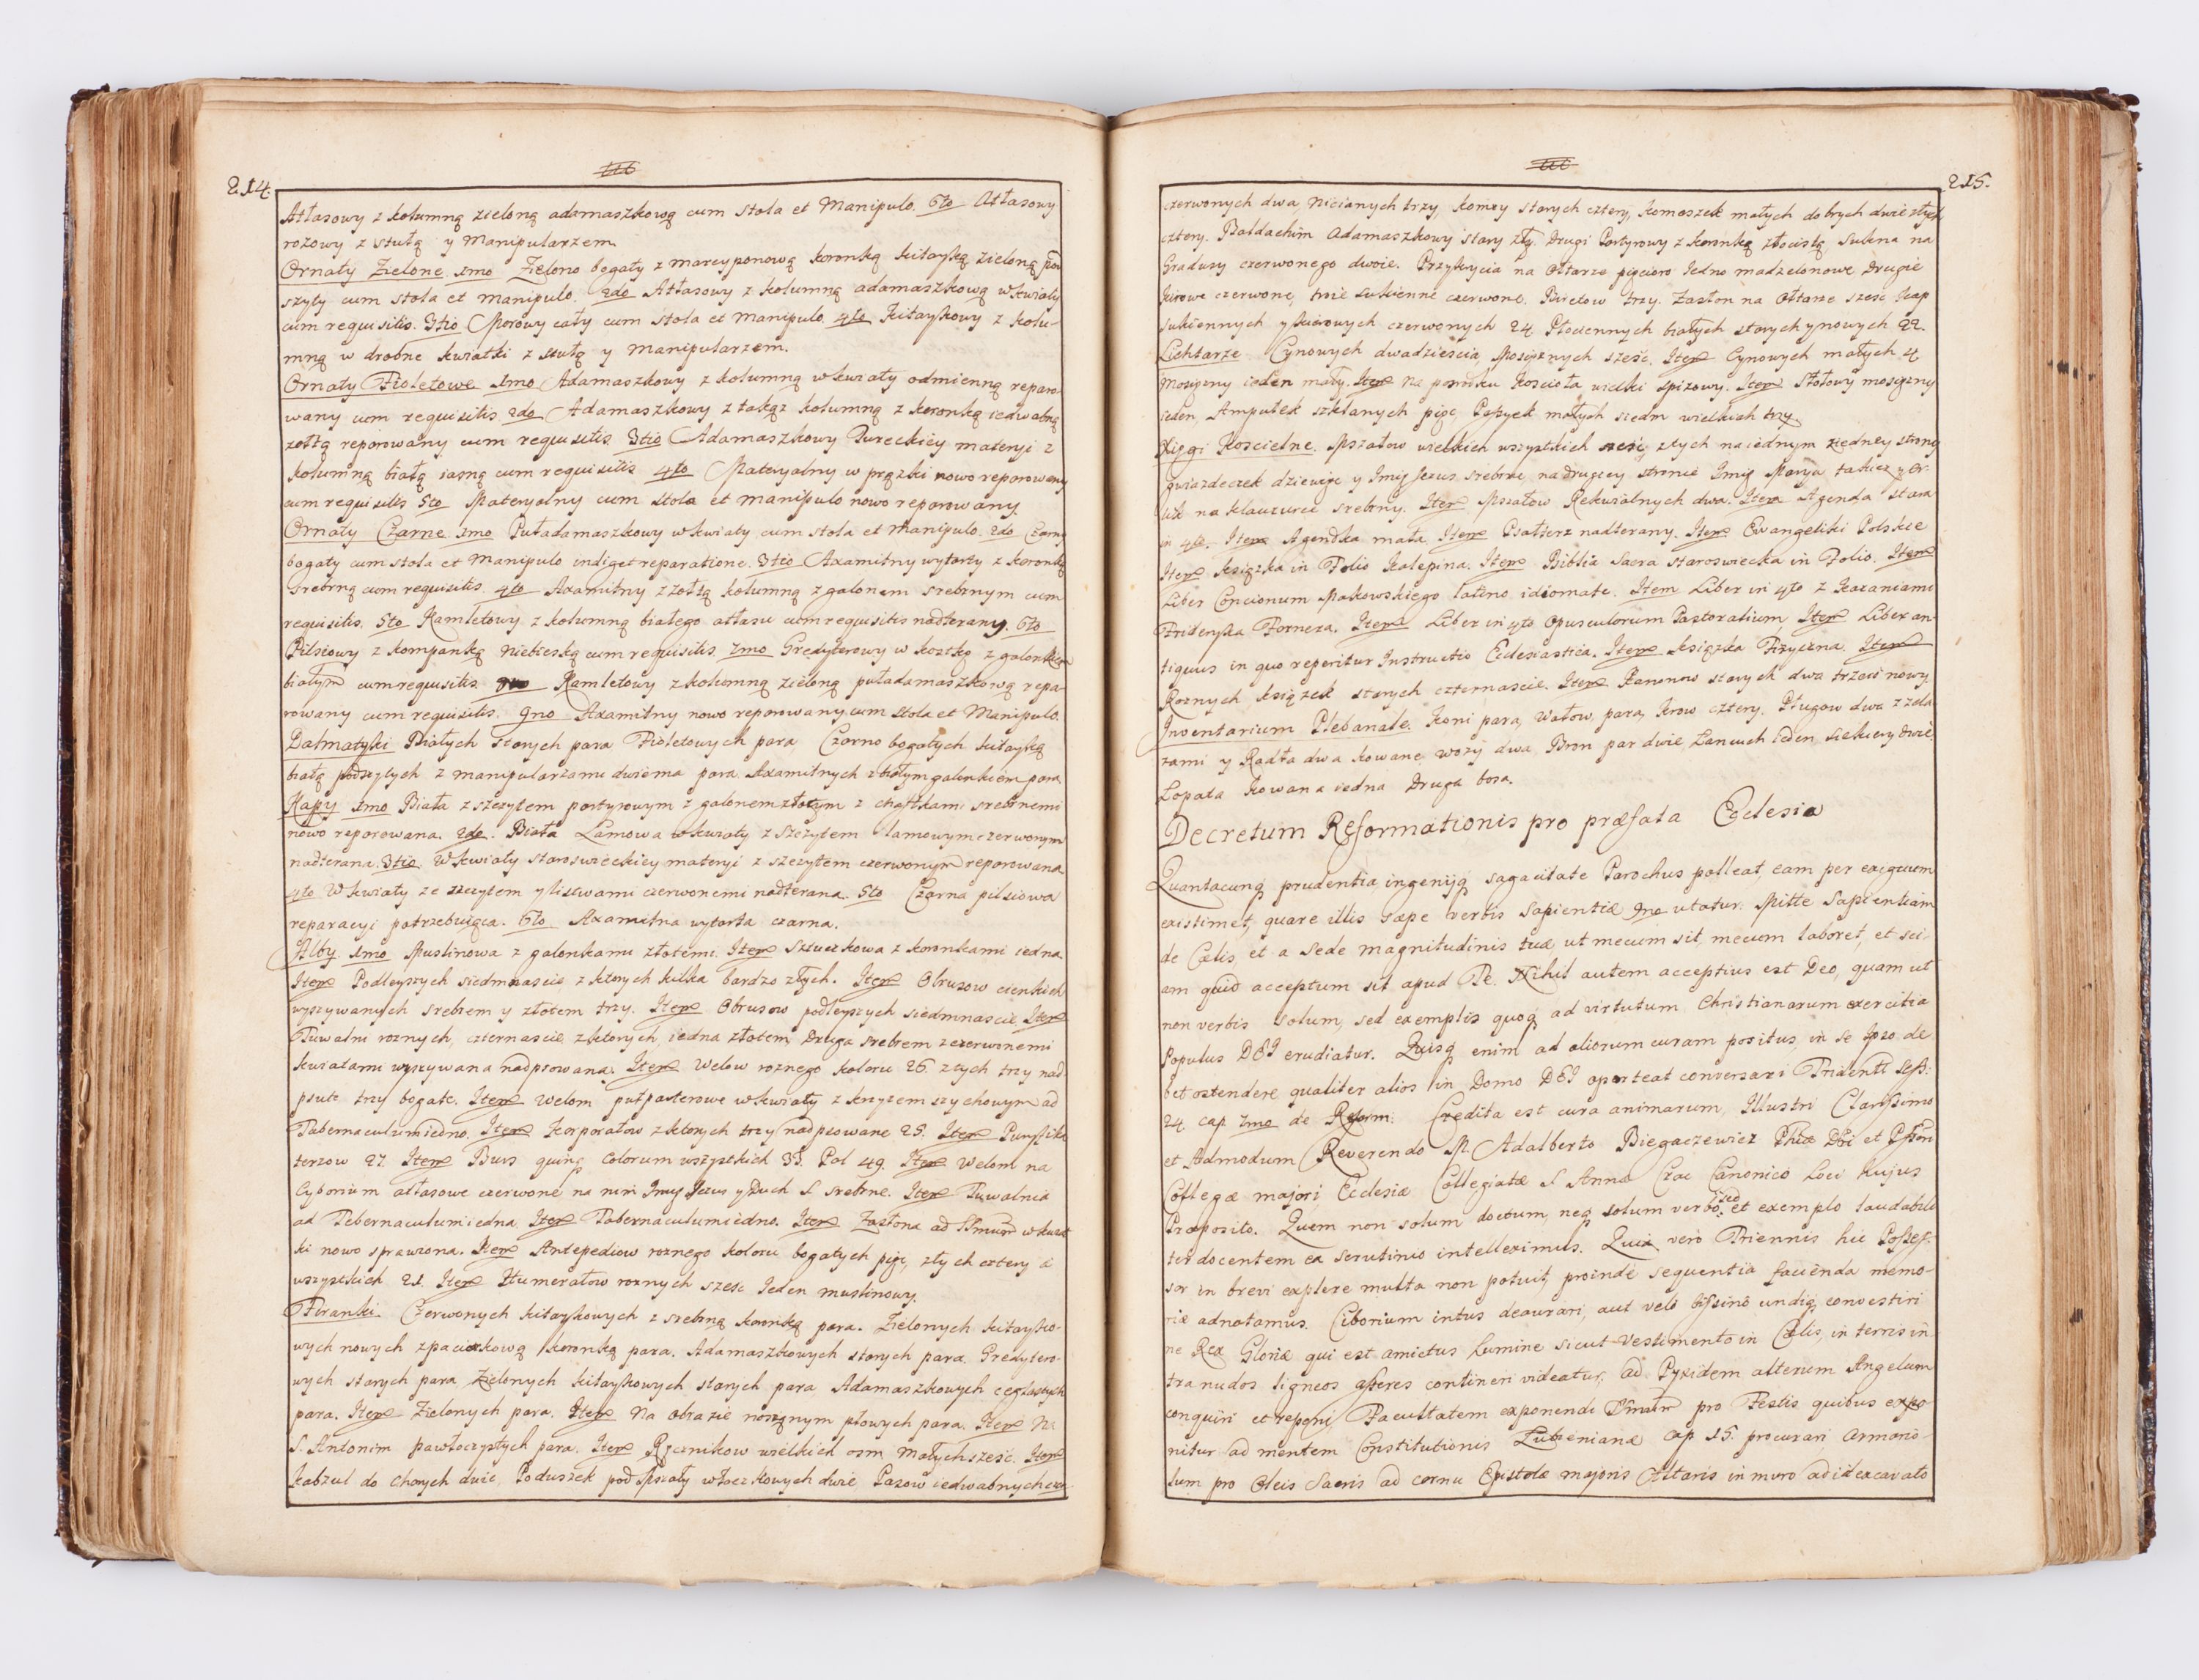 214.
Atłasowy z kolumną zieloną adamaszkową cum stola et Manipulo. 6to Atłasowy
rożowy z stułą y Manipularzem
Ornaty Zielone 1mo Zielono bogaty z marcyponową koronką kitayką zieloną pod
szyty cum stola et manipulo. 2do Atłasowy z kolumną adamaszkową w kwiaty
cum requisitis. 3tio Morowy cały cum stola et Manipulo. 4to Kitaykowy z kolu-
mną w drobne kwiatki z stułą y Manipularzem.
Ornaty Fioletowe 1mo Adamaszkowy z kolumną w kwiaty odmienną reparo-
wany cum requisitis 2do Adamaszkowy z takąż kolumną z koronką iedwabną
żołtą reporowany cum requisitis 3tio Adamaszkowy Tureckiey materyi z
kolumną białą iasną cum requisitis 4to Materyalny w prążki nowo reporowany
cum requisitis 5to Materyalny cum stola et manipulo nowo reporowany
Ornaty Czarne 1mo Puładamaszkowy w kwiaty cum stola et Manipulo. 2do Czarny
bogaty cum stola et Manipulo indiget reparatione. 3tio Axamitny wytarty z koronką
srebrną cum requisitis. 4to Axamitny z żołtą kolumną z galonem srebrnym cum
requisitis. 5to Kamletowy z kolumną białego atłasu cum requisitis nadterany. 6to
Pilsiowy z kompanką niebieską cum requisitis 7mo Gredyterowy w kostkę z galonkiem
białym cum requisitis 8vo Kamletowy z kolumną zieloną puładamaszkową repa-
rowany cum requisitis. 9no Axamitny nowo reporowany cum stola et Manipulo.
Dalmatyki Białych starych para Fioletowych para Czarno bogatych kitayką
białą podszytych z manipularzami dwiema para Axamitnych z białym galonkiem para
Kapy 1mo Biała z szczytem portyrowym z galonem złotym z chaftkami srebrnemi
nowo reporowana. 2do. Biała Lamowa w kwiaty z szczytem lamowym czerwonym
nadterana. 3tio. W kwiaty staroswieckiey materyi z szczytem czerwonym reporowana
4to W kwiaty ze szczytem y listwami czerwonemi nadterana. 5to Czarna pilsiowa
reparacyi potrzebuiąca. 6to Axamitna wytarta czarna.
Alby 1mo Muslinowa z galonkami złotemi. Item Sztuczkowa z koronkami iedna
Item Podleyszych siedmnascie z ktorych kilka bardzo złych. Item Obrusow cienkich
wyszywanych srebrem y złotem trzy. Item Obrusow podleyszych siedmnascie Item
Tuwalni roznych, czternascie, z ktorych, iedna złotem, Druga srebrem z czerwonemi
kwiatami wyszywana nadpsowana. Item Welow roznego koloru 26. złych trzy nad
psute trzy bogate. Item Welom pułparterowe w kwiaty z krzyżem szychowym ad
Tabernaculum iedno. Item Korporałow z ktorych trzy nadpsowane 25. Item Puryfika
terzow 27. Item Burs quinq Colorum wszystkich 35. Pal 49. Item Welom na
Cyborium atłasowe czerwone na nim Imię Jezus y Duch S srebrne. Item Tuwalnia
ad Tebernaculum iedna. Item Tabernaculum iedno. Item Zasłona ad SSmum w kwiat
ki nowo sprawiona. Item Antepediow roznego koloru bogatych pięć, złych cztery a
wszystkich 21. Item Humerałow roznych szesc Ieden muslinowy.
Firanki Czerwonych kitaykowych z srebrną koronką para. Zielonych kitayko-
wych nowych z paciorkową koronką para. Adamaszkowych starych para. Gredytero-
wych starych para Zielonych kitaykowych starych para Adamaszkowych ceglastych
para. Item Zielonych para. Item Na obrazie noszącym płowych para. Item Na
S. Antonim pawłoczystych para. Item Ręcznikow wielkich osm Małych szesć. Item
Kabzul do chorych dwie, Poduszek pod Mszały włoczkowych dwie Pasow iedwabnych czer-
215.
czerwonych dwa, nicianych trzy, Komzy starych cztery, Komeszek małych dobrych dwie złych
cztery. Baldachim Adamaszkowy stary zły. Drugi Portyrowy z koronką złocistą. Sukna na
Gradusy czerwonego dwoie. Przykrycia na Ołtarze pięcioro Iedno madzelonowe Drugie
kirowe czerwone, troie sukienne czerwone. Biretow trzy. Zasłon na Ołtarze szesc Kap
sukiennych y skorowych czerwonych 24 Płociennych białych starych y nowych 22.
Lichtarze Cynowych dwadziescia, Mosiężnych szesć. Item Cynowych małych 4
mosiężny ieden mały. Item Na posrodku Kosciola wielki spiżowy. Item Stołowy mosiężny
ieden, Ampułek szklanych pięć, Puszek małych siedm wielkich trzy
Xięgi Koscielne. Mszałow wielkich wszystkich szesc, złych na iednym z iedney strony
gwiazdeczek dziewięc y Imię Jezus srebrne, na drugiey stronie Imię Marya także, y Or-
lik na klauzurce srebrny. Item Mszałow Rekwialnych dwa. Item Agenda stara
in 4to. Item Agendka mała Item Psałterz nadterany. Item Ewangeliki Polskie
Item książka in Folio Kalepina. Item Biblia Sacra staroswiecka in Folio. Item
Liber Concionum Makowskiego latino idiomate. Item Liber in 4to z Kazaniami
Fridenyka Fornera. Item Liber in 4to Opusculorum Pastoralium Item Liber an-
tiquus in quo reperitur Instructio Ecclesiastica. Item książka Fizyczna. Item
Roznych książek starych czternascie. Item Kanonow starych dwa trzeci nowy.
Inventarium Plebanale. Koni para, Wołow para, Krow cztery. Pługow dwa z żela-
zami y Radła dwa kowane wozy dwa, Bron par dwie Łancuch ieden siekiery dwie,
Lopata kowana iedna Druga bosa.
Decretum Reformationis pro præfata Ecclesia
Quantacunq prudentia, ingeniiq sagacitate Parochus polleat, eam per exiguam
existimet, quare illis sæpe verbis Sapientiæ 9no utatur. Mitte Sapientiam
de Cælis, et a Sede magnitudinis tuæ ut mecum sit, mecum laboret, et sci-
am quid acceptum sit apud Te. Nihil autem acceptius est Deo, quam ut
non verbis solum, sed exemplis quoq ad virtutum Christianarum exercitia
Populus DEI erudiatur. Quisq enim ad aliorum curam positus, in se Ipso de
bet ostendere qualiter alios in Domo DEI oporteat conversari Tridentt Sess:
24 cap 7mo de Reform. Credita est cura animarum, Illustri Clarissimo
et Admodum Reverendo M. Adalberto Biegaczewicz Phiæ DRi et Pssori
Collegæ majori, Ecclesiæ Collegiatæ S Annæ Crac Canonico Loci hujus
Præposito. Quem non solum doctum, neq solum verbo sed et exemplo laudabili
ter docentem ex scrutinio intelleximus. Quia verò Triennis hic Posses-
sor in brevi explere multa non potuit, proindè sequentia facienda memo-
riæ adnotamus. Ciborium intus deaurari, aut velo bissinò undiq convestiri
ne Rex Gloriæ qui est amictus Lumine sicut Vestimento in Cælis, in terris in
tra nudos ligneos asseres contineri videatur. Ad Pyxidem alterum Angelum
conquiri et reponi. Facultatem exponendi SSmum pro Festis quibus expo-
nitur ad mentem Constitutionis Lubienianæ cap 15. procurari Armario-
lum pro Oleis Sacris ad cornu Epistolæ majoris Altaris in muro ad id excavato